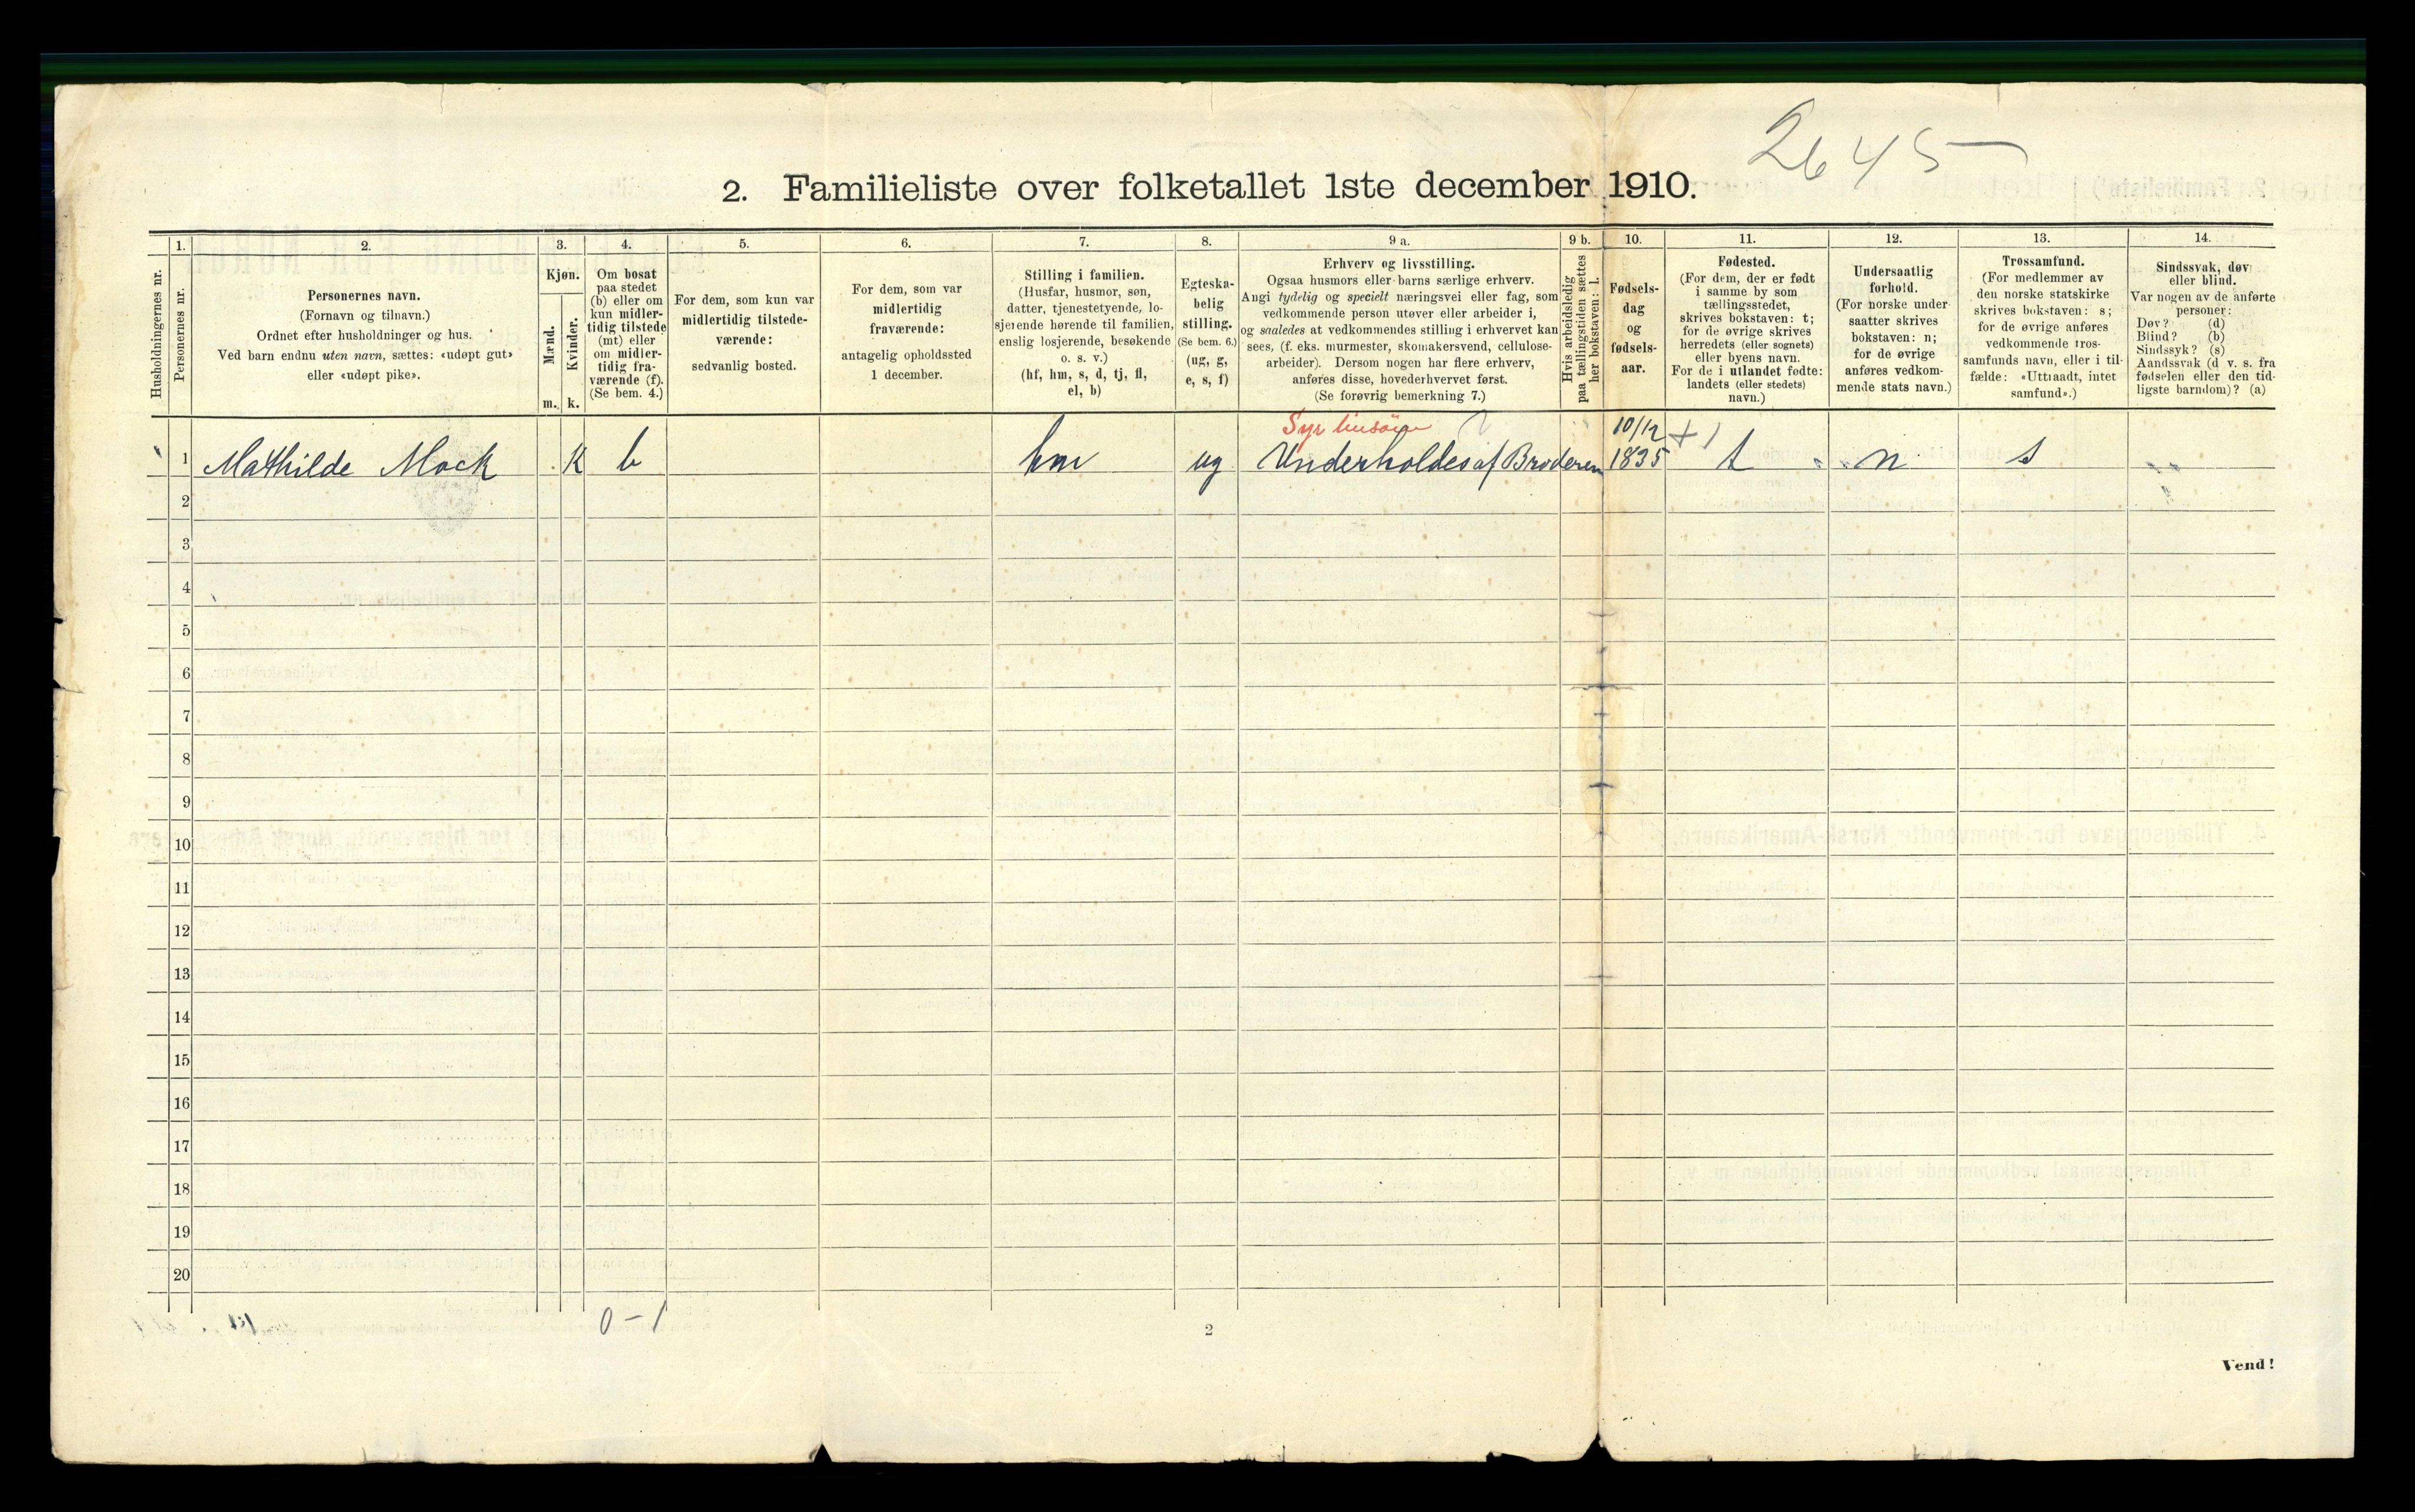 2645
2. Familieliste over folketallet 1ste december 1910.
Husholdningernes nr.
1.
Personernes nr.
2.
Personernes navn.
(Fornavn og tilnavn.)
Ordnet efter husholdninger og hus.
Ved barn endnu uten navn, sættes: «udøpt gut»
eller «udøpt pike».
3.
Kjøn.
Mænd.
Kvinder.
m. k.
4.
Om bosat
paa stedet
(b) eller om
kun midler-
tidig tilstede
(mt) eller
om midler-
tidig fra-
værende (f).
(Se bem. 4.)
5.
For dem, som kun var
midlertidig tilstede-
værende:
sedvanlig bosted.
6.
For dem, som var
midlertidig
fraværende:
antagelig opholdssted
1 december.
7.
Stilling i familien.
(Husfar, husmor, søn,
datter, tjenestetyende, lo-
sjerende hørende til familien,
enslig losjerende, besøkende
o. s. v.)
(hf, hm, s, d, tj, fl,
el, b)
8.
Egteska-
belig
stilling.
(Se bem. 6.)
(ug, g,
e, s, f)
9 a.
Erhverv og livsstilling.
Ogsaa husmors eller barns særlige erhverv.
Angi tydelig og specielt næringsvei eller fag, som
vedkommende person utøver eller arbeider i,
og saaledes at vedkommendes stilling i erhvervet kan
sees, (f. eks. murmester, skomakersvend, cellulose-
arbeider). Dersom nogen har flere erhverv,
anføres disse, hovederhvervet først.
(Se forøvrig bemerkning 7.)
9 b.
Hvis arbeidsledig
paa tællingstiden sættes
her bokstaven: l.
10.
Fødsels-
dag
og
fødsels-
aar.
11.
Fødested.
(For dem, der er født
i samme by som
tællingsstedet,
skrives bokstaven: t;
for de øvrige skrives
herredets (eller sognets)
eller byens navn.
For de i utlandet fødte:
landets (eller stedets)
navn.)
12.
Undersaatlig
forhold.
(For norske under-
saatter skrives
bokstaven: n;
for de øvrige
anføres vedkom-
mende stats navn.)
13.
Trossamfund.
(For medlemmer av
den norske statskirke
skrives bokstaven: s;
for de øvrige anføres
vedkommende tros-
samfunds navn, eller i til-
fælde: «Uttraadt, intet
samfund».)
14.
Sindssvak, døv
eller blind.
Var nogen av de anførte
personer:
Døv? (d)
Blind? (b)
Sindssyk? (s)
Aandssvak (d. v. s. fra
fødselen eller den tid-
ligste barndom)? (a)
10/12
1 Mathilde Mock K b hm ug Underholdes af Broderen 1835 t n s
2
3
4
5
6
7
8
9
10
11
12
13
14
15
16
17
18
19
20
0-1
2
Vend!